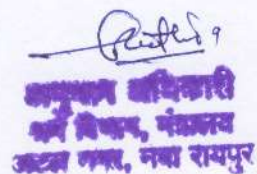 अनुभाग अधिकारी
धर्म विभाग, मंत्रालय
अटल नगर, नवा रायपुर